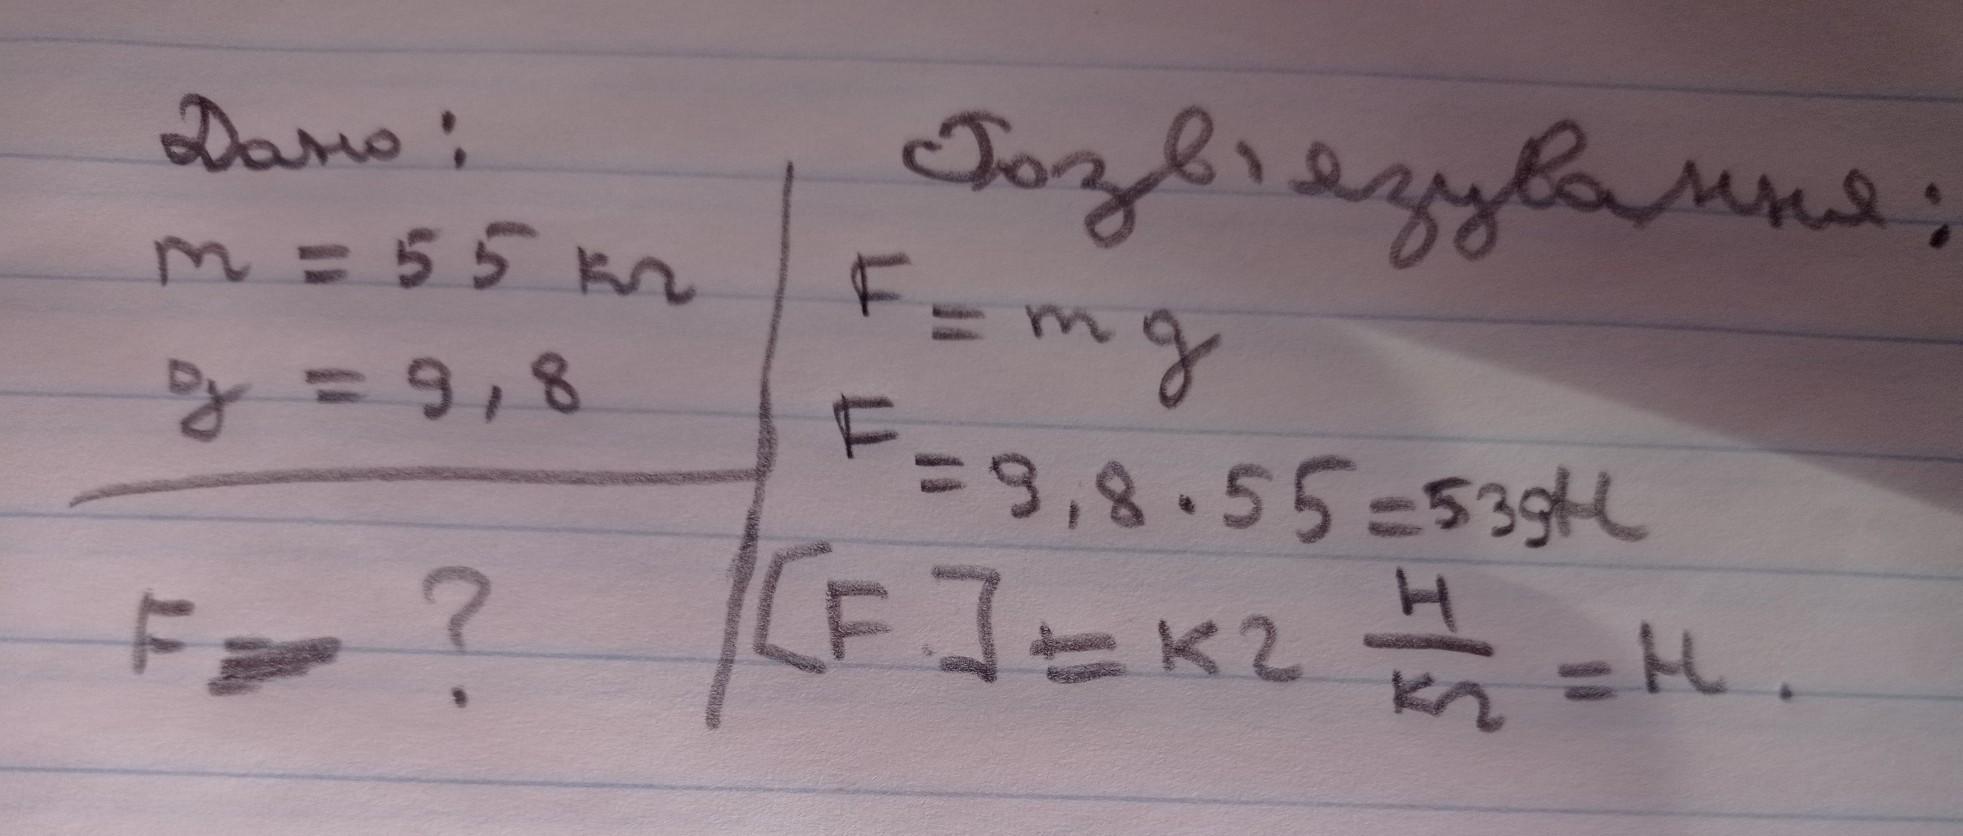 Дано:
m = 55 кг
g = 9,8
F = ?
Розв'язування:
F = mg
F = 9,8 · 55 = 539Н
[F] = кг Н/кг = Н.